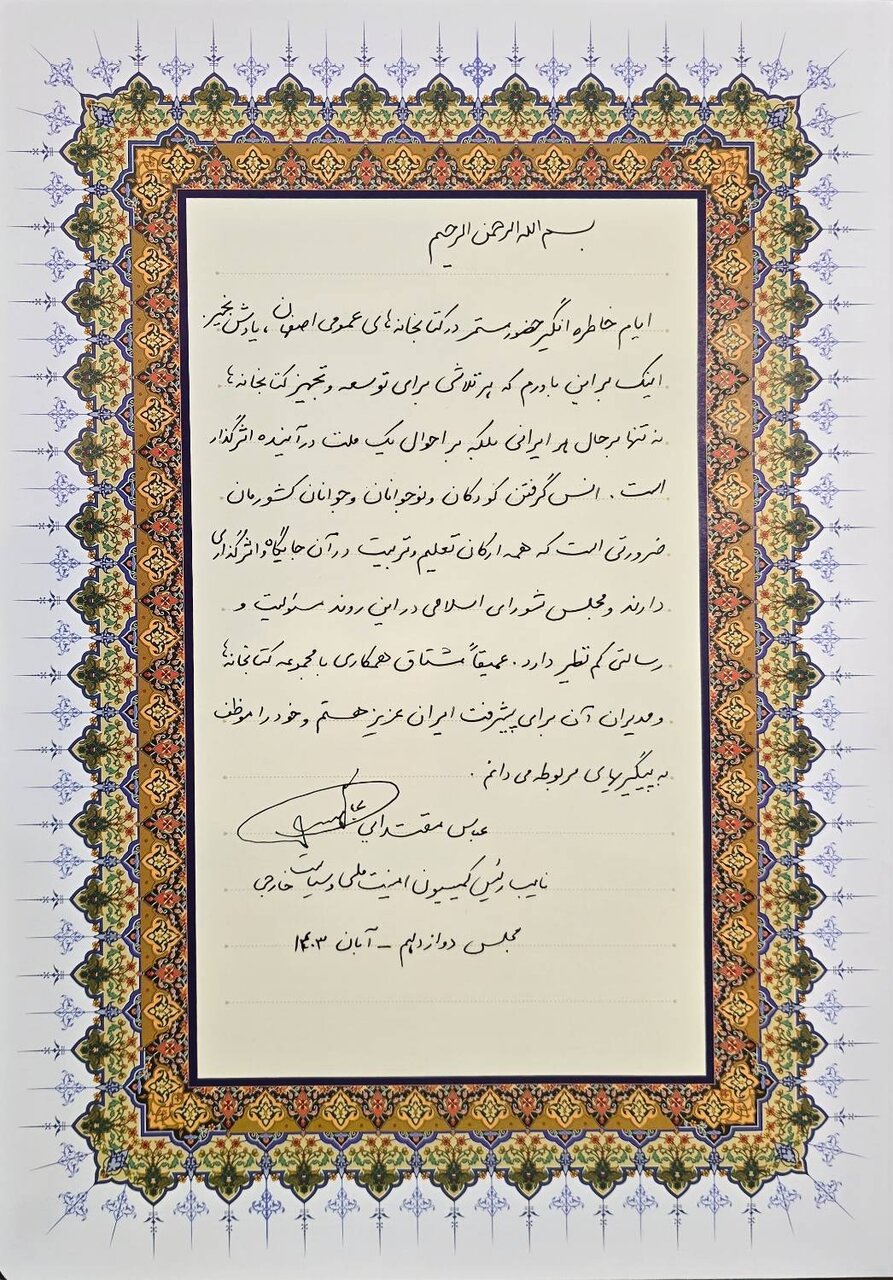 بسم الله الرحمن الرحیم
ایام خاطره انگیز حضور مستمر در کتابخانه های عمومی اصفهان، یادش بخیر.
اینک بر این باورم که هر تلاشی برای توسعه و تجهیز کتابخانه ها
نه تنها بر حال هر ایرانی بلکه بر احوال یک ملت در آینده اثرگذار
است. انس گرفتن کودکان و نوجوانان و جوانان کشورمان
ضرورتی است که همه ارکان تعلیم و تربیت در آن جایگاه و اثرگذاری
دارند و مجلس شورای اسلامی در این روند مسئولیت و
رسالتی کم نظیر دارد. عمیقاً مشتاق همکاری با مجموعه کتابخانه ها
و مدیران آن برای پیشرفت ایران عزیز هستم و خود را موظف
به پیگیریهای مربوطه می دانم.
عباس مقتدائی
نایب رئیس کمیسیون امنیت ملی و سیاست خارجی
مجلس دوازدهم - آبان ۱۴۰۳